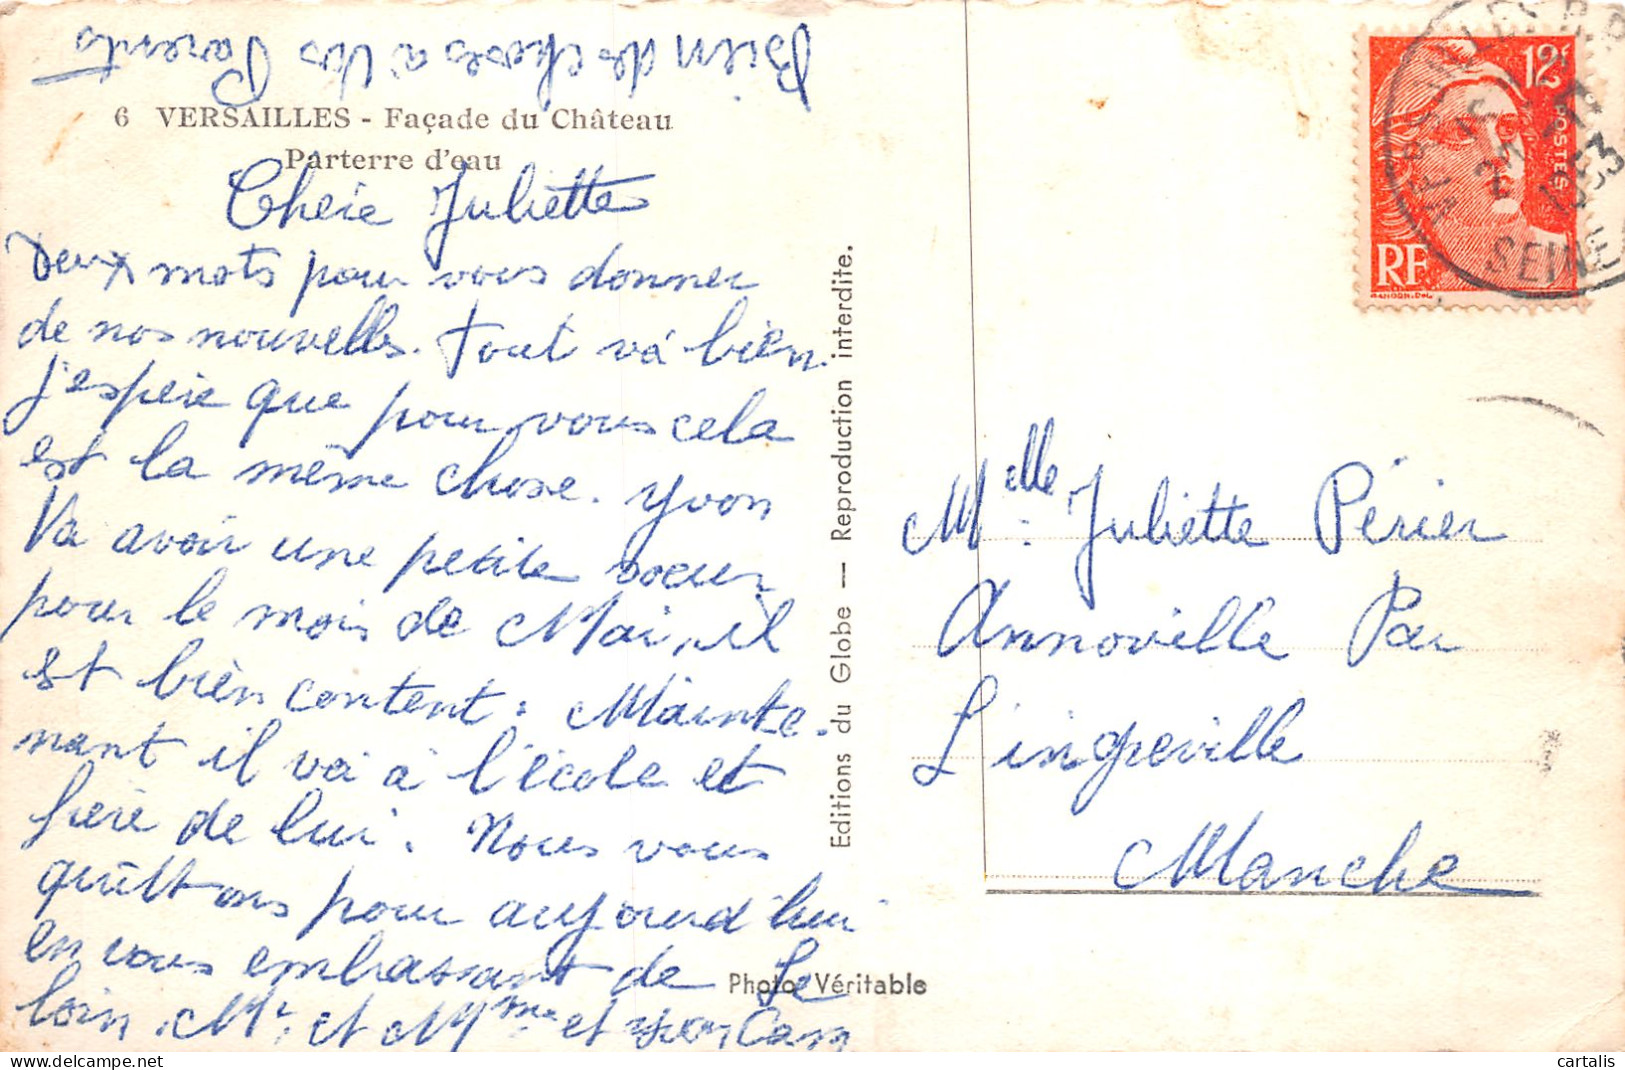 Bien des choses à vos Parents
6 VERSAILLES - Façade du Château
Parterre d'eau
Chére Juliette
Deux mots pour vous donner
de nos nouvelles. Tout vá bien
j'espére que pour vous cela
est la même chose. Yvon
Va avoir une petite soeur
pour le mois de Mai, il
est bien content. Mainte-
nant il va à l'école et
fiére de lui. Nous vous
quittons pour aujourd'hui
en vous embrassant de
loin. Mr et Mme et Yvon
Photo Véritable
Editions du Globe — Reproduction interdite.
12f
POSTES
RF
VERSAILLES R.P.
1953
SEINE
Melle Juliette Périer
Annoville Par
Lingreville
Manche
cartalis